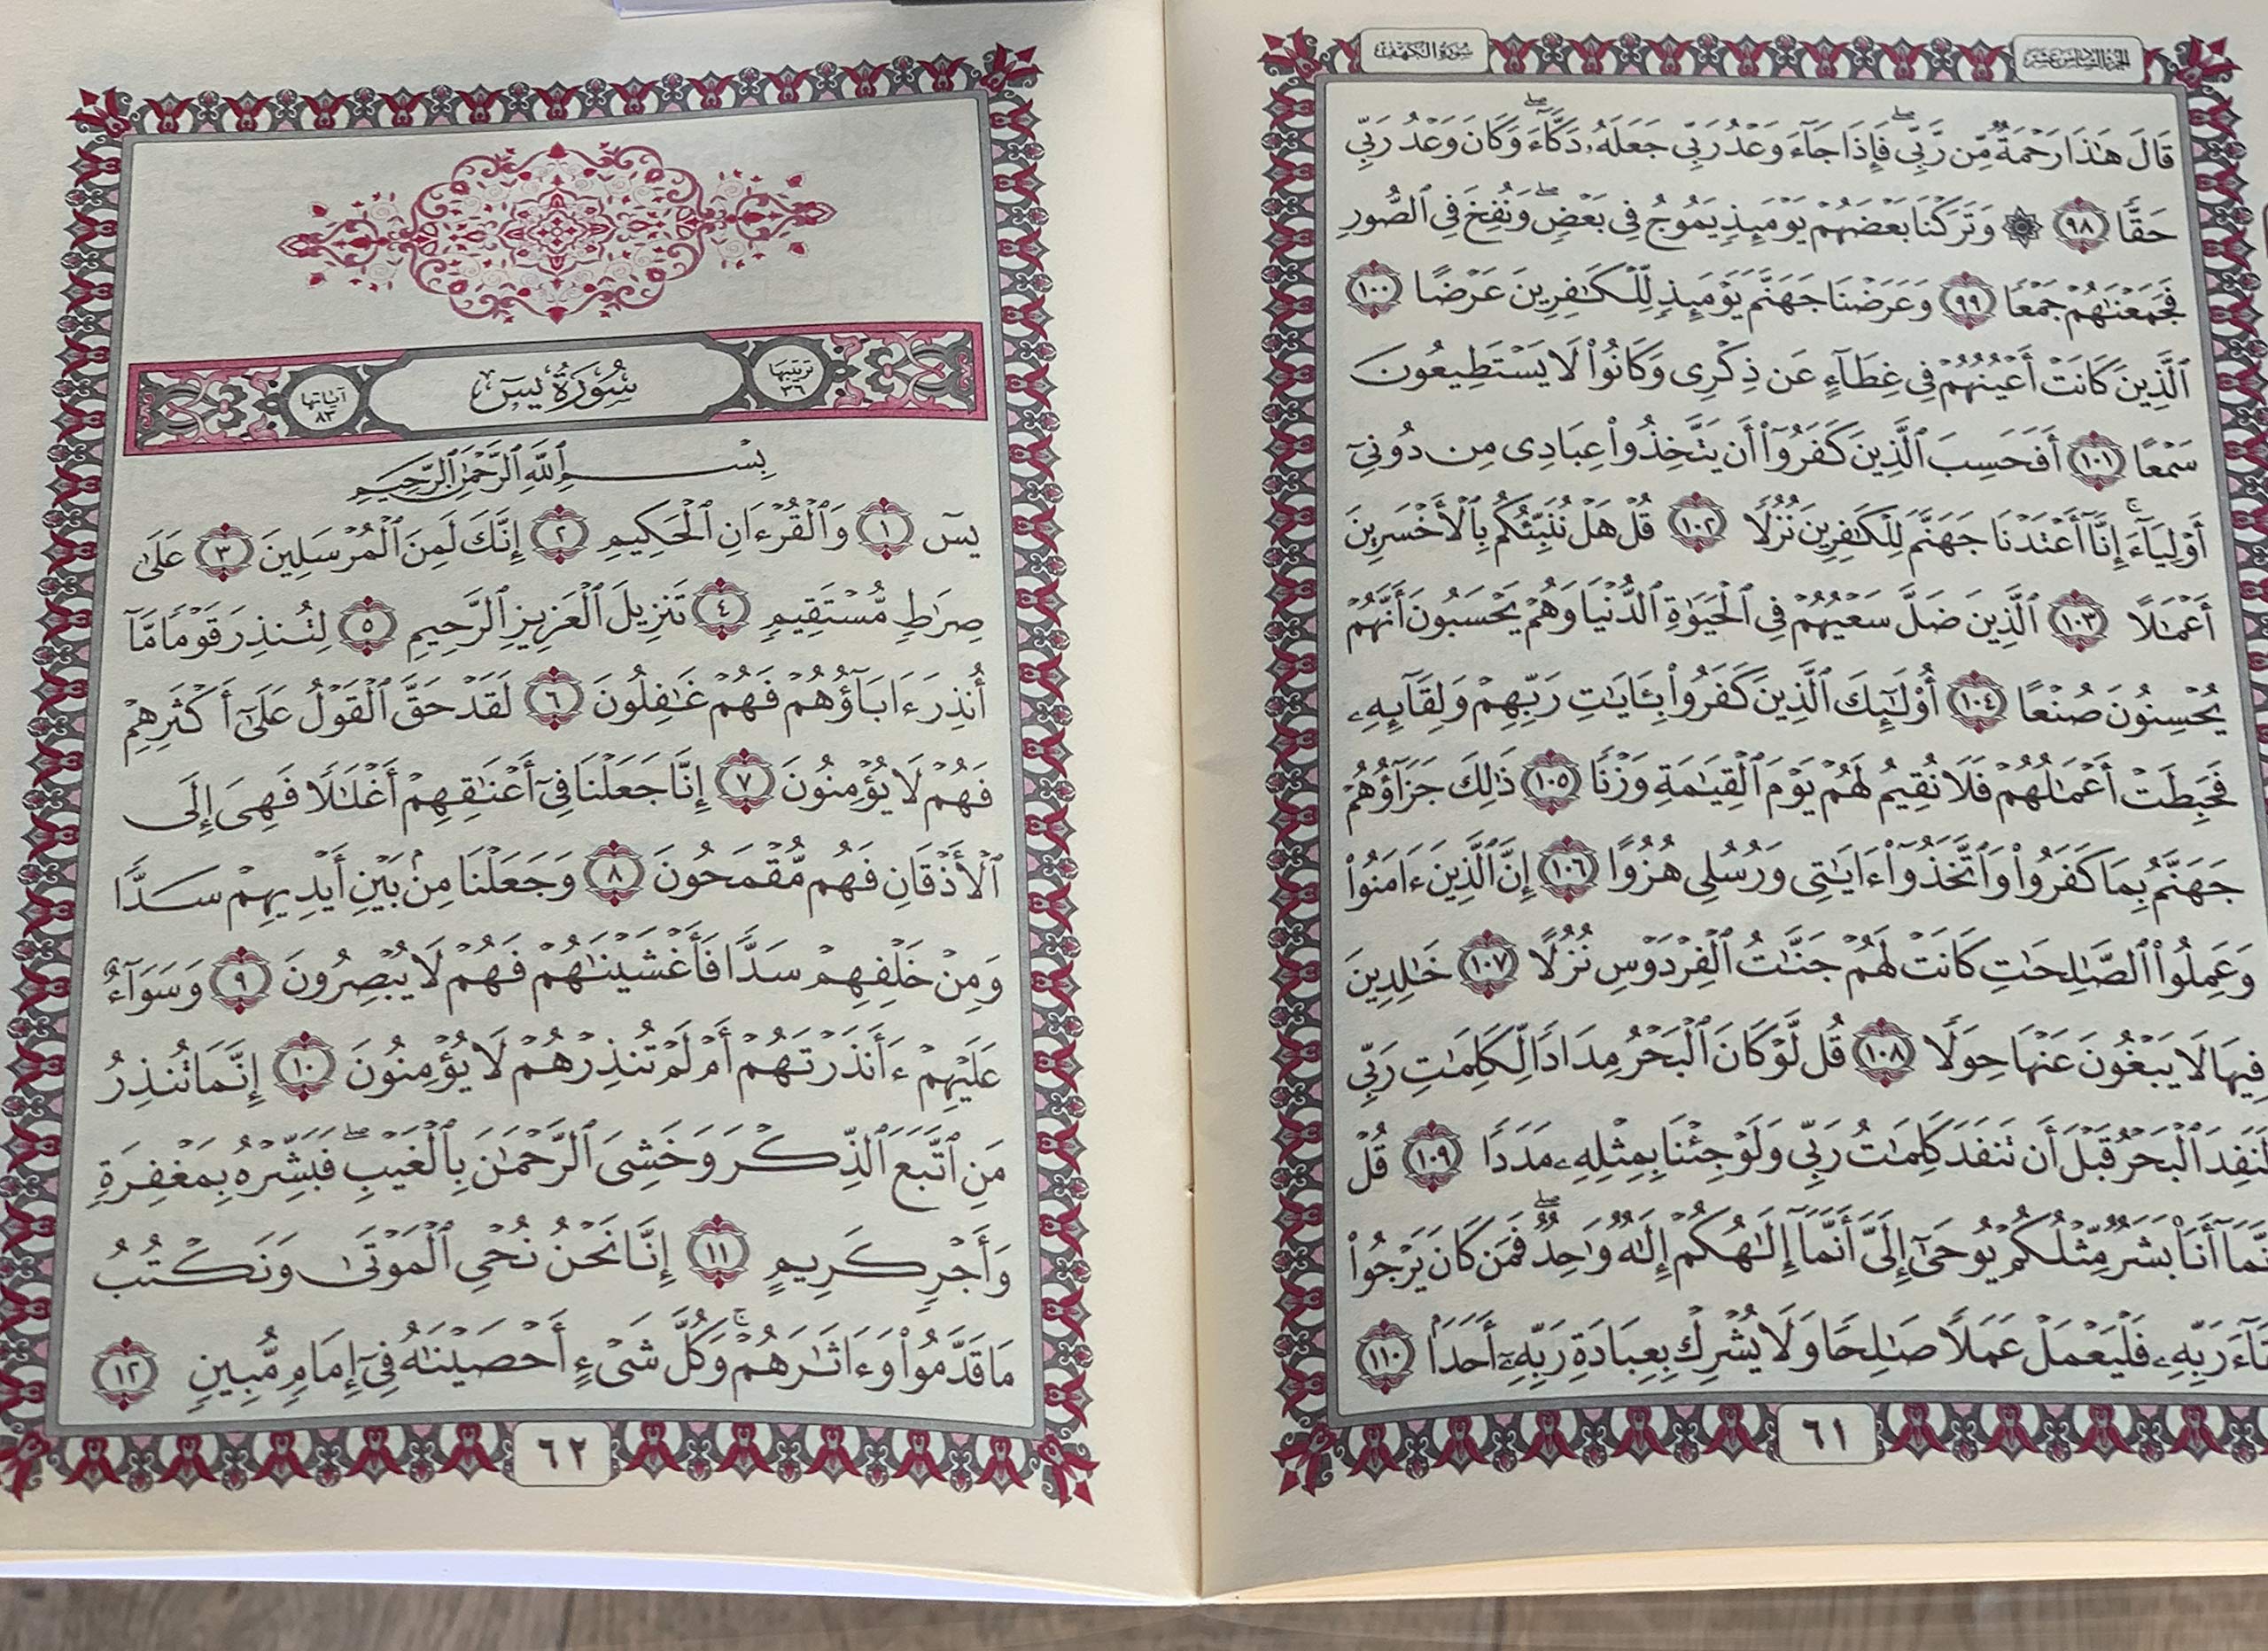 الجزء السادس عشر
سورة الكهف
قَالَ هَٰذَا رَحْمَةٌ مِّن رَّبِّي ۖ فَإِذَا جَآءَ وَعْدُ رَبِّي جَعَلَهُۥ دَكَّآءَ ۖ وَكَانَ وَعْدُ رَبِّي
حَقًّا ٩٨ ۞ وَتَرَكْنَا بَعْضَهُمْ يَوْمَئِذٍ يَمُوجُ فِي بَعْضٍ ۖ وَنُفِخَ فِي ٱلصُّورِ
فَجَمَعْنَٰهُمْ جَمْعًا ٩٩ وَعَرَضْنَا جَهَنَّمَ يَوْمَئِذٍ لِّلْكَٰفِرِينَ عَرْضًا ١٠٠
ٱلَّذِينَ كَانَتْ أَعْيُنُهُمْ فِي غِطَآءٍ عَن ذِكْرِي وَكَانُوا۟ لَا يَسْتَطِيعُونَ
سَمْعًا ١٠١ أَفَحَسِبَ ٱلَّذِينَ كَفَرُوٓا۟ أَن يَتَّخِذُوا۟ عِبَادِي مِن دُونِيٓ
أَوْلِيَآءَ ۚ إِنَّآ أَعْتَدْنَا جَهَنَّمَ لِلْكَٰفِرِينَ نُزُلًا ١٠٢ قُلْ هَلْ نُنَبِّئُكُم بِٱلْأَخْسَرِينَ
أَعْمَٰلًا ١٠٣ ٱلَّذِينَ ضَلَّ سَعْيُهُمْ فِي ٱلْحَيَوٰةِ ٱلدُّنْيَا وَهُمْ يَحْسَبُونَ أَنَّهُمْ
يُحْسِنُونَ صُنْعًا ١٠٤ أُو۟لَٰٓئِكَ ٱلَّذِينَ كَفَرُوا۟ بِـَٔايَٰتِ رَبِّهِمْ وَلِقَآئِهِۦ
فَحَبِطَتْ أَعْمَٰلُهُمْ فَلَا نُقِيمُ لَهُمْ يَوْمَ ٱلْقِيَٰمَةِ وَزْنًا ١٠٥ ذَٰلِكَ جَزَآؤُهُمْ
جَهَنَّمُ بِمَا كَفَرُوا۟ وَٱتَّخَذُوٓا۟ ءَايَٰتِي وَرُسُلِي هُزُوًا ١٠٦ إِنَّ ٱلَّذِينَ ءَامَنُوا۟
وَعَمِلُوا۟ ٱلصَّٰلِحَٰتِ كَانَتْ لَهُمْ جَنَّٰتُ ٱلْفِرْدَوْسِ نُزُلًا ١٠٧ خَٰلِدِينَ
فِيهَا لَا يَبْغُونَ عَنْهَا حِوَلًا ١٠٨ قُل لَّوْ كَانَ ٱلْبَحْرُ مِدَادًا لِّكَلِمَٰتِ رَبِّي
لَنَفِدَ ٱلْبَحْرُ قَبْلَ أَن تَنفَدَ كَلِمَٰتُ رَبِّي وَلَوْ جِئْنَا بِمِثْلِهِۦ مَدَدًا ١٠٩ قُلْ
إِنَّمَآ أَنَا۠ بَشَرٌ مِّثْلُكُمْ يُوحَىٰٓ إِلَيَّ أَنَّمَآ إِلَٰهُكُمْ إِلَٰهٌ وَٰحِدٌ ۖ فَمَن كَانَ يَرْجُوا۟
رَبِّهِۦ فَلْيَعْمَلْ عَمَلًا صَٰلِحًا وَلَا يُشْرِكْ بِعِبَادَةِ رَبِّهِۦٓ أَحَدًۢا ١١٠
٦١
ترتيبها ٣٦
سُورَةُ يسٓ
آياتها ٨٣
بِسْمِ ٱللَّهِ ٱلرَّحْمَٰنِ ٱلرَّحِيمِ
يسٓ ١ وَٱلْقُرْءَانِ ٱلْحَكِيمِ ٢ إِنَّكَ لَمِنَ ٱلْمُرْسَلِينَ ٣ عَلَىٰ
صِرَٰطٍ مُّسْتَقِيمٍ ٤ تَنزِيلَ ٱلْعَزِيزِ ٱلرَّحِيمِ ٥ لِتُنذِرَ قَوْمًا مَّآ
أُنذِرَ ءَابَآؤُهُمْ فَهُمْ غَٰفِلُونَ ٦ لَقَدْ حَقَّ ٱلْقَوْلُ عَلَىٰٓ أَكْثَرِهِمْ
فَهُمْ لَا يُؤْمِنُونَ ٧ إِنَّا جَعَلْنَا فِيٓ أَعْنَٰقِهِمْ أَغْلَٰلًا فَهِيَ إِلَى
ٱلْأَذْقَانِ فَهُم مُّقْمَحُونَ ٨ وَجَعَلْنَا مِنۢ بَيْنِ أَيْدِيهِمْ سَدًّا
وَمِنْ خَلْفِهِمْ سَدًّا فَأَغْشَيْنَٰهُمْ فَهُمْ لَا يُبْصِرُونَ ٩ وَسَوَآءٌ
عَلَيْهِمْ ءَأَنذَرْتَهُمْ أَمْ لَمْ تُنذِرْهُمْ لَا يُؤْمِنُونَ ١٠ إِنَّمَا تُنذِرُ
مَنِ ٱتَّبَعَ ٱلذِّكْرَ وَخَشِيَ ٱلرَّحْمَٰنَ بِٱلْغَيْبِ ۖ فَبَشِّرْهُ بِمَغْفِرَةٍ
وَأَجْرٍ كَرِيمٍ ١١ إِنَّا نَحْنُ نُحْيِ ٱلْمَوْتَىٰ وَنَكْتُبُ
مَا قَدَّمُوا۟ وَءَاثَٰرَهُمْ ۚ وَكُلَّ شَيْءٍ أَحْصَيْنَٰهُ فِيٓ إِمَامٍ مُّبِينٍ ١٢
٦٢